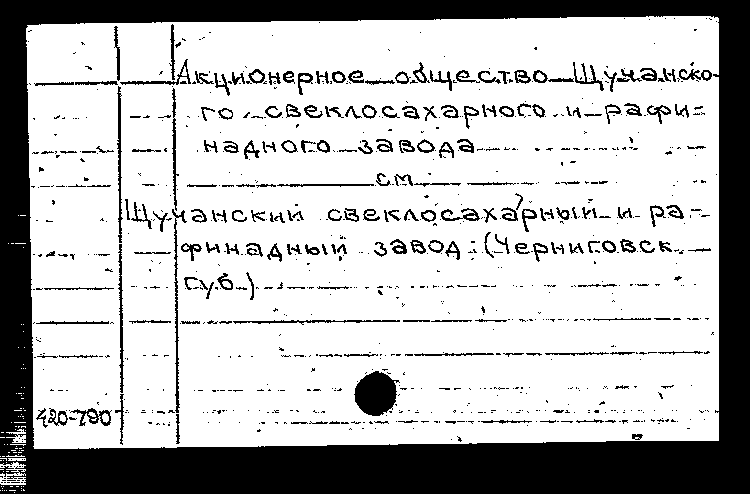 Акционерное общество Щучанско-
го свеклосахарного и рафи-
надного завода
см
Щучанский свеклосахарный и ра-
финадный завод (Черниговск.
губ.)
420-790